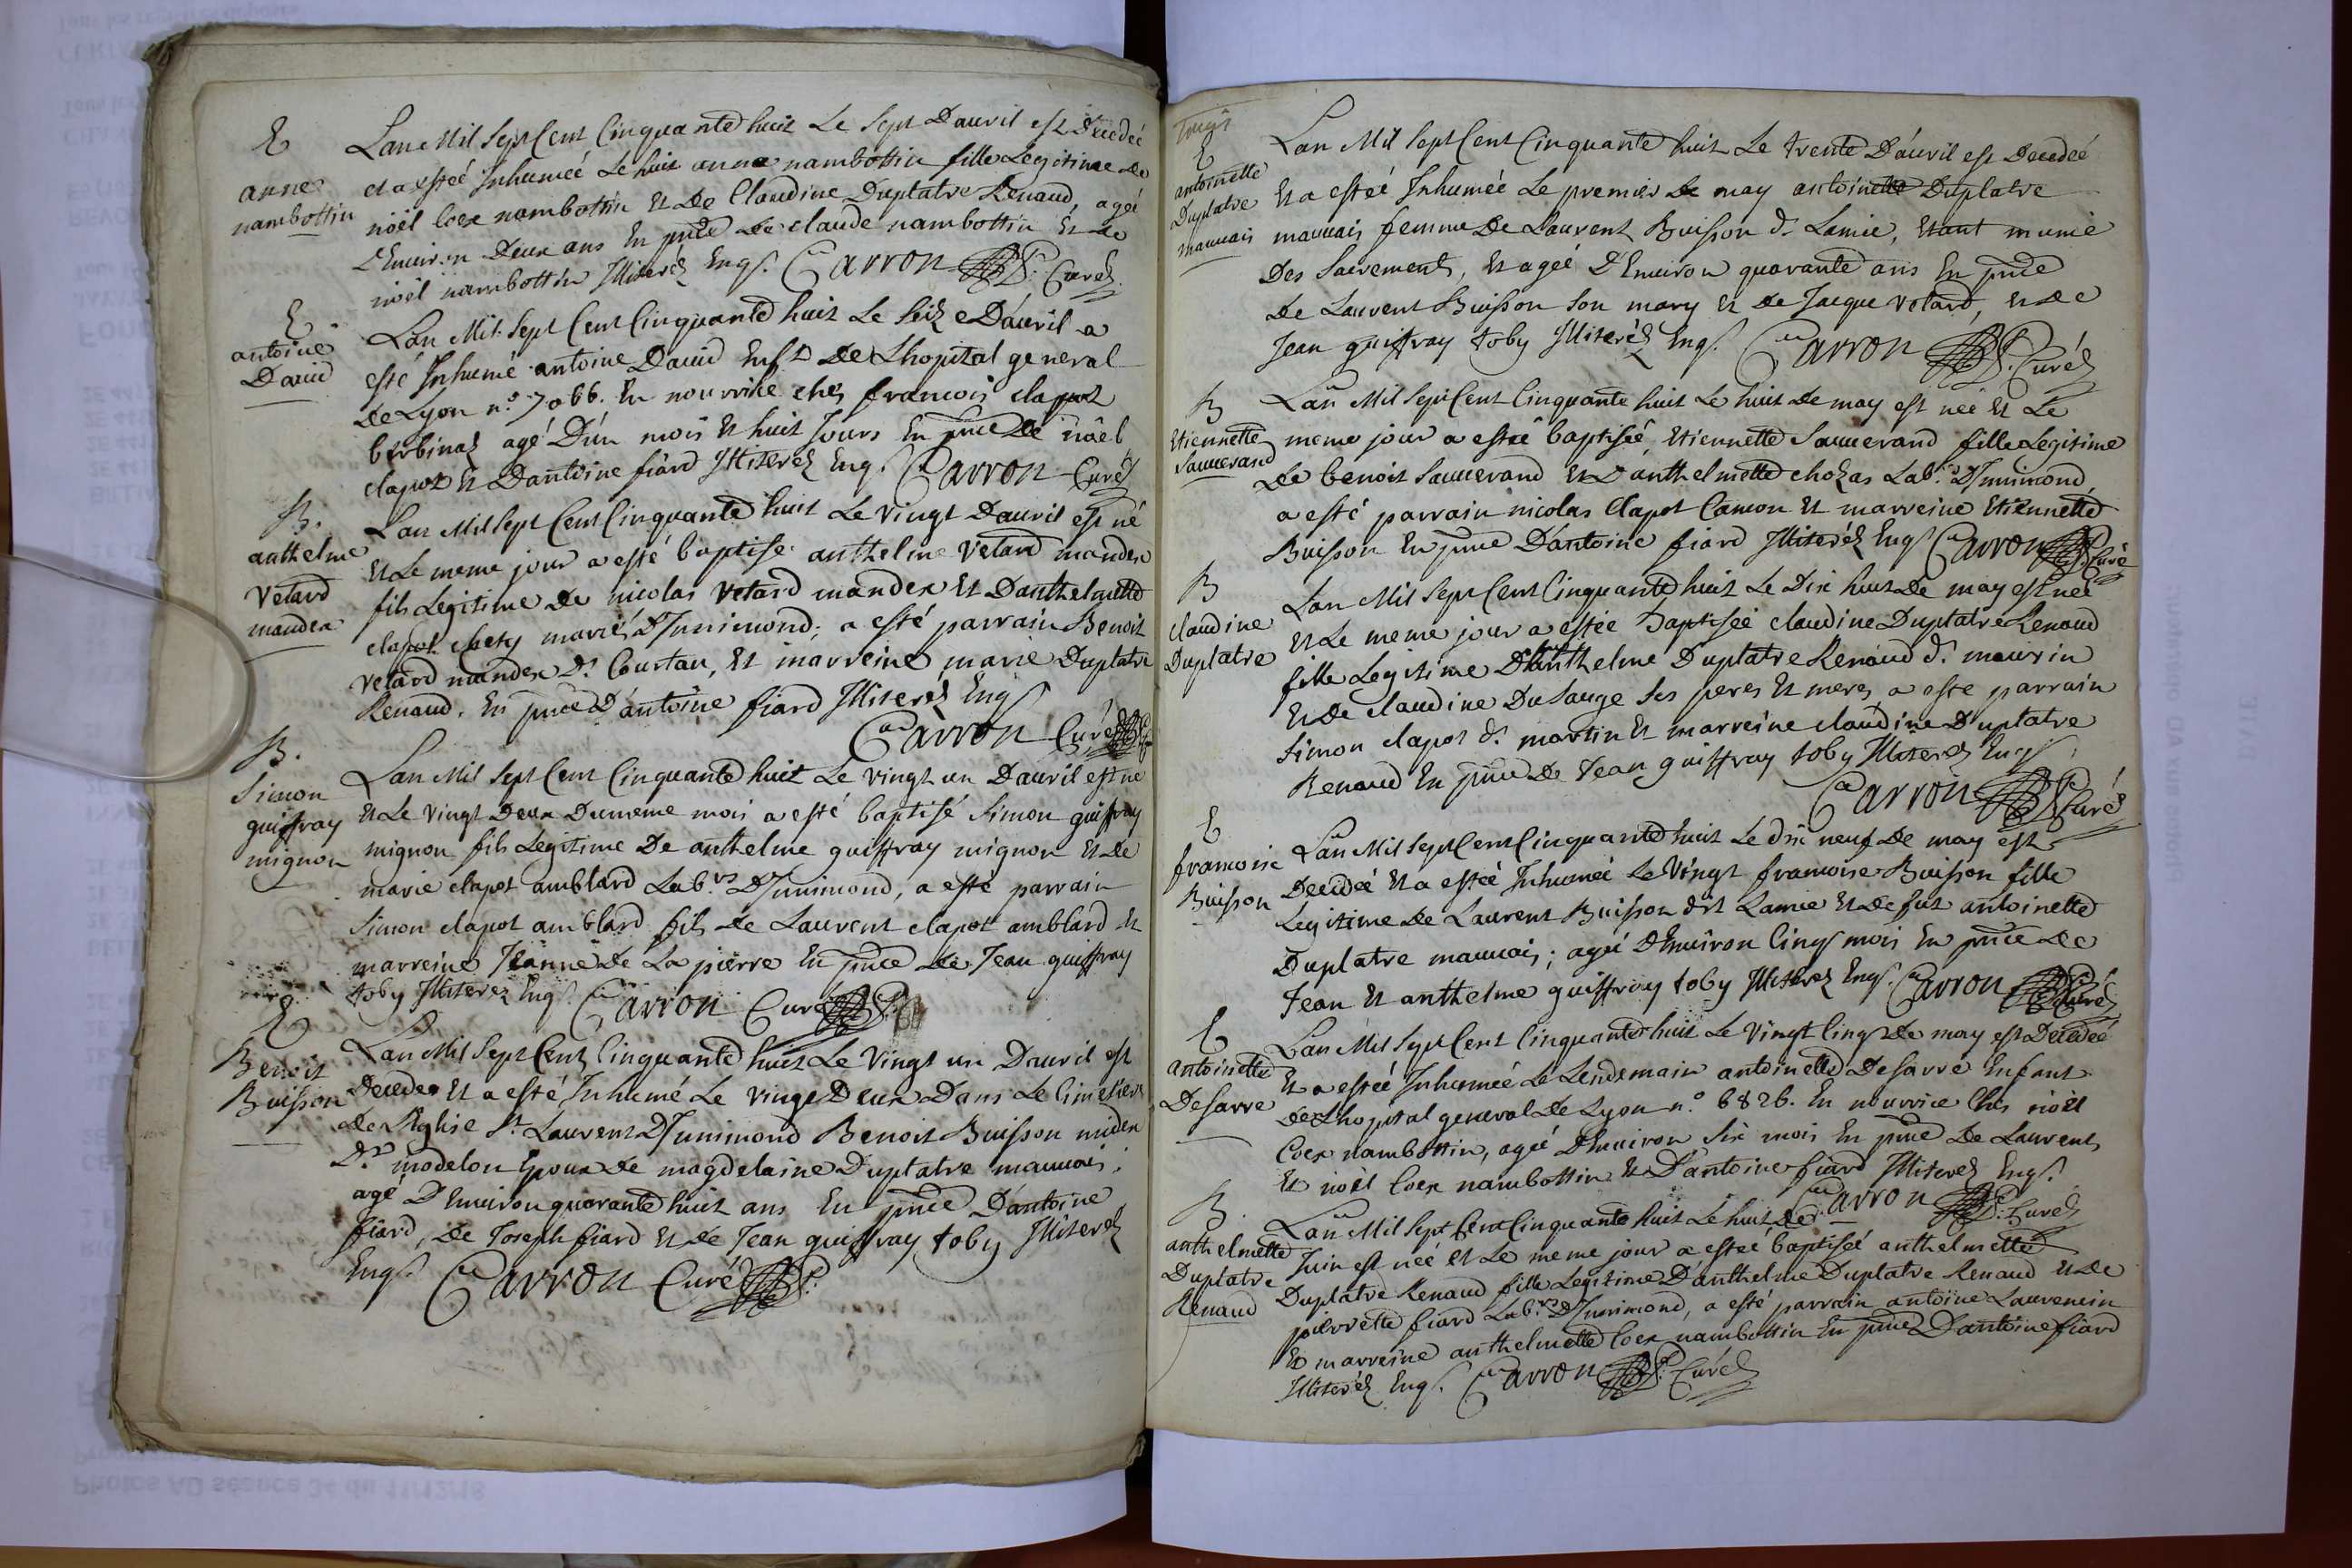 E
anne
nambottin
Lan Mil Sept Cent Cinquante huit Le Sept Dauril est Decedeé
et a estéé Inhumeé Le huit anne nambottin fille Legitime de
noël Coex nambottin Et De Claudine Duplatre Renaud, ageé
d'Enuiron Deux ans En pñce de claude nambottin Et de
noel nambottin Illiterés Enqs. Carron Curé
E
antoine
Dauid
Lan Mil Sept Cent Cinquante huit Le Seize Dauril a
esté Inhumé antoine Dauid Enft De Lhopital general
de Lyon n.º 7066. En nourrice ches francois clapot
berbinas agé D'un mois Et huit Jours En pñce de noël
clapot Et Dantoine fiard Illiterés Enqs. Carron Curé
B.
anthelme
Vetard
mandex
Lan Mil Sept Cent Cinquante huit Le Vingt Dauril est né
Et Le meme jour a esté baptise anthelme Vetard mandex
fils Legitime de nicolas Vetard mandex Et Danthelmette
clapot chety mariés D'Junimond; a esté parrain Benoit
Vetard mandex d. Courtau, Et marreine marie Duplatre
Renaud. En pñce D'antoine fiard Illiterés Enqs
Carron Curé
B.
Simon
guiffray
mignon
Lan Mil Sept Cent Cinquante huit Le vingt un Dauril est né
Et Le vingt Deux Du meme mois a esté baptisé Simon guiffray
mignon fils Legitime De anthelme guiffray mignon Et de
marie clapot amblard Lab.rs D'Junimond, a esté parrain
Simon clapot amblard fils de Laurent clapot amblard Et
marreine Jeanne De La pierre En pñce de Jean guiffray
toby Illiterez Enqs. Carron Curé
E
Benoit
Buisson
Lan Mil Sept Cent Cinquante huit Le Vingt un Dauril est
Decedé Et a esté Inhumé Le vingt Deux Dans Le Cimetiere
de L'Eglise St Laurent D'Junimond Benoit Buisson mudex
D.t modelon Epoux de magdelaine Duplatre mauuais;
agé D'Enuiron quarante huit ans En pñce D'antoine
fiard, de Joseph fiard Et de Jean guiffray toby Illiterés
Enqs. Carron Curé
E
antoinette
Duplatre
mauuais
Lan Mil Sept Cent Cinquante huit Le trente D'auril est Decedeé
Et a esteé Inhumeé Le premier de may antoinette Duplatre
mauuais femme De Laurent Buisson d. Lamie, Etant munie
Des Sacrements, Et ageé D'Enuiron quarante ans En pñce
de Laurent Buisson Son mary Et de Jacque Vetard, Et de
Jean guiffray toby Illiterés Enqs. Carron Curé
B
Etiennette
Sauuerand
Lan Mil Sept Cent Cinquante huit Le huit de may est neé Et Le
meme jour a esteé baptiseé Etiennette Sauuerand fille Legitime
de benoit Sauuerand Et D'anthelmette chozas Lab.rs D'Junimond
a esté parrain nicolas Clapot Camon Et marreine Etiennette
Buisson En pñce D'antoine fiard Illiterés Enqs Carron Curé
B
claudine
Duplatre
Lan Mil Sept Cent Cinquante huit Le Dix huit De may est neé
Et Le meme jour a esteé baptiseé claudine Duplatre Renaud
fille Legitime D'anthelme Duplatre Renaud d. maurin
Et De claudine Dusauge Ses peres Et meres, a esté parrain
Simon clapot d. martin Et marreine claudine Duplatre
Renaud En pñce De Jean guiffray toby Illiterés Enqs
Carron Curé
E
francoise
Buisson
Lan Mil Sept Cent Cinquante huit Le dix neuf De may est
Decedeé Et a esteé Inhumeé Le Vingt francoise Buisson fille
Legitime de Laurent Buisson dit Lamie Et de fut antoinette
Duplatre mauuais; ageé D'Enuiron Cinq mois En pñce de
Jean Et anthelme guiffray toby Illiterés Enqs. Carron Curé
E
antoinette
Desarre
Lan Mil Sept Cent Cinquante huit Le Vingt Cinq de may est Decedeé
Et a esteé Inhumeé Le Lendemain antoinette Desarre Enfant
de Lhopital general de Lyon n.º 6826. En nourrice Ches noël
Coex nambottin, ageé D'Enuiron Six mois En pñce De Laurent
Et noël Coex nambottin Et D'antoine fiard Illiterés Enqs.
Carron Curé
B
anthelmette
Duplatre
Renaud
Lan Mil Sept Cent Cinquante huit Le huit de
Juin est neé Et Le meme jour a esteé baptiseé anthelmette
Duplatre Renaud fille Legitime D'anthelme Duplatre Renaud Et de
pierrette fiard Lab.rs D'Junimond, a esté parrain antoine Laurencin
Et marreine anthelmette Coex nambottin En pñce D'antoine fiard
Illiterés Enqs. Carron Curé